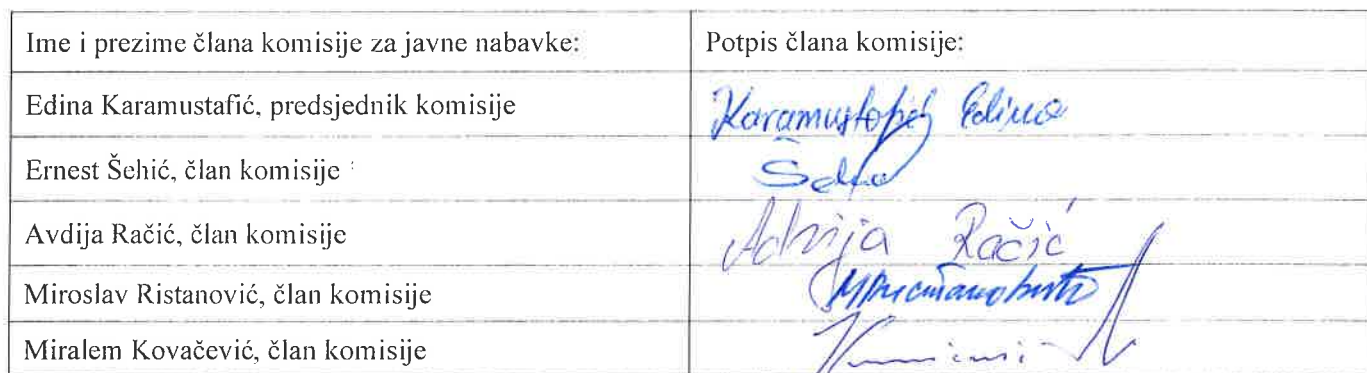 Ime i prezime člana komisije za javne nabavke: Potpis člana komisije:
Edina Karamustafić, predsjednik komisije Karamustafić Edina
Ernest Šehić, član komisije
Avdija Račić, član komisije Avdija Račić
Miroslav Ristanović, član komisije
Miralem Kovačević, član komisije